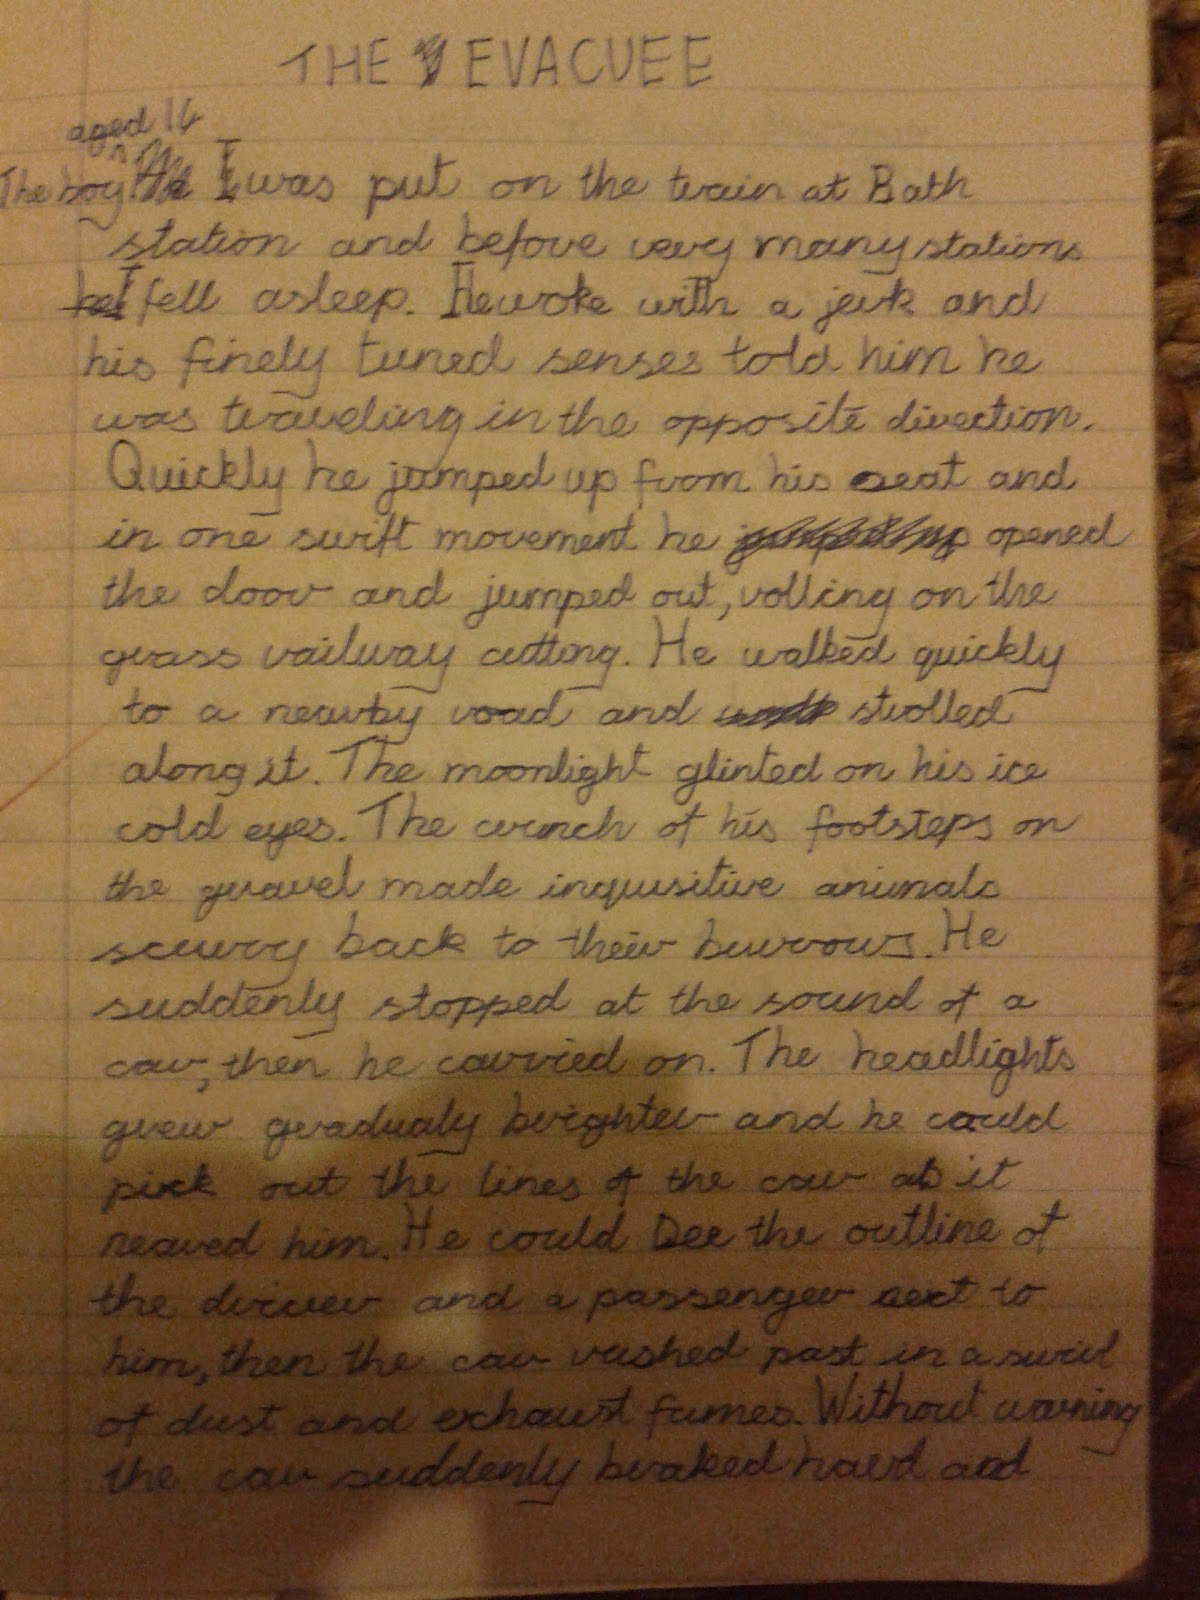 THE EVACUEE
aged 14
The boy I was put on the train at Bath
station and before very many stations
he I fell asleep. He woke with a jerk and
his finely tuned senses told him he
was traveling in the opposite direction.
Quickly he jumped up from his seat and
in one swift movement he jumped up opened
the door and jumped out, rolling on the
grass railway cutting. He walked quickly
to a nearby road and strolled
along it. The moonlight glinted on his ice
cold eyes. The crunch of his footsteps on
the gravel made inquisitive animals
scurry back to their burrows. He
suddenly stopped at the sound of a
car, then he carried on. The headlights
grew gradualy brighter and he could
pick out the lines of the car as it
neared him. He could see the outline of
the driver and a passenger next to
him, then the car rushed past in a swirl
of dust and exhaust fumes. Without warning
the car suddenly braked hard and